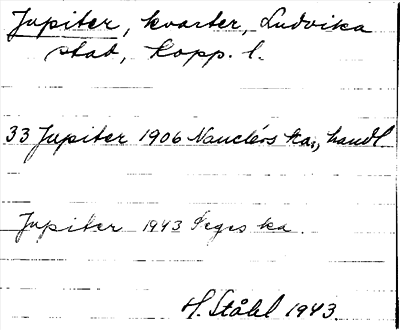 Jupiter, kvarter, Ludvika
stad, Kopp. l.
33 Jupiter 1906 Naucléos ka., handl
Jupiter 1943 Seges ka.
H. Ståhl 1943.